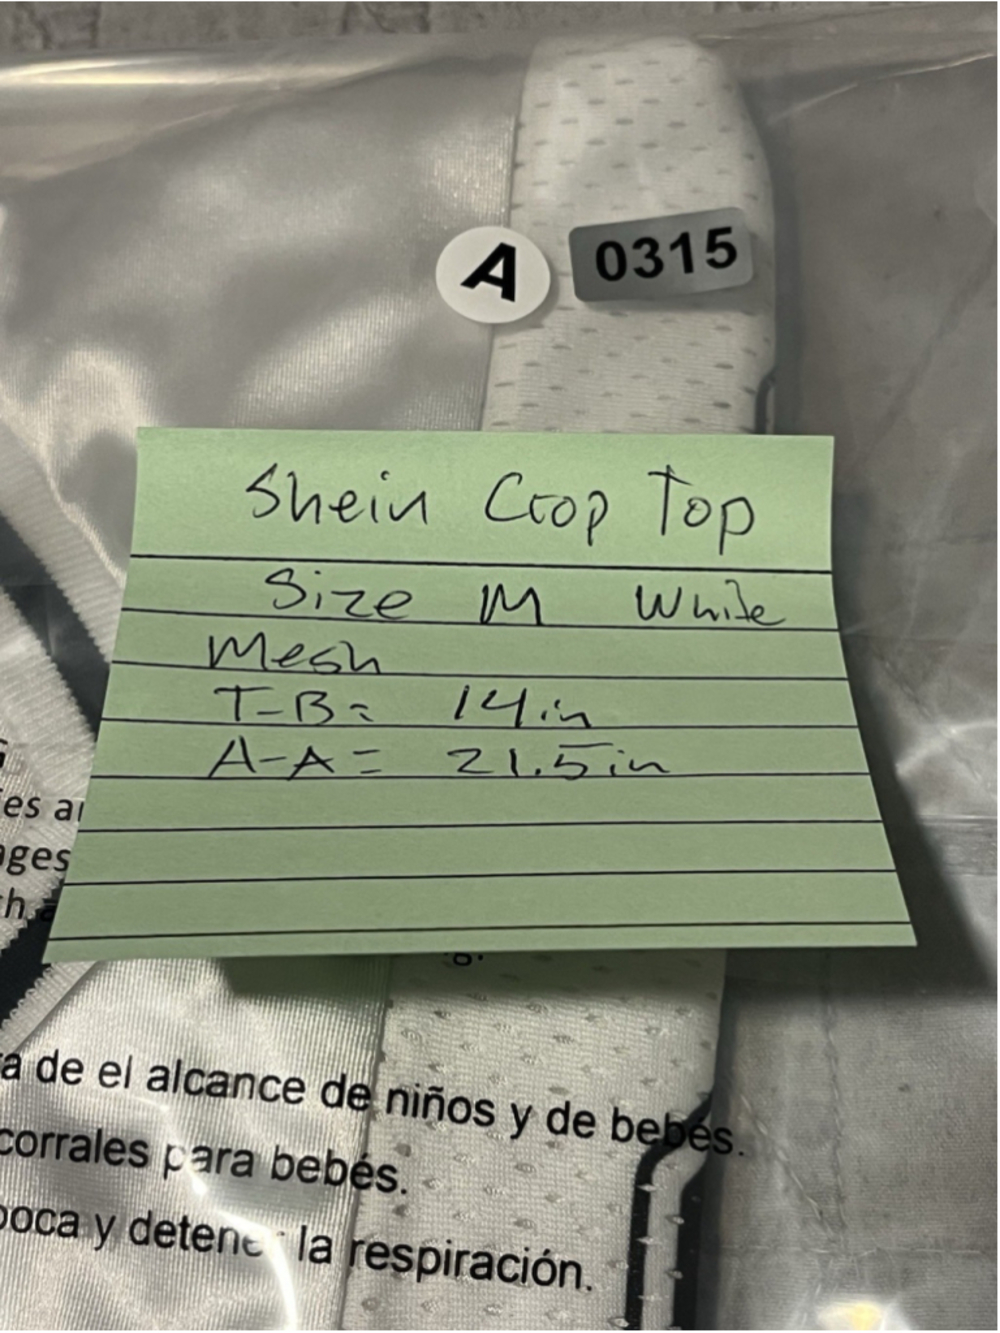 A 0315
Shein Crop Top
Size M White
Mesh
T-B= 14in
A-A= 21.5in
es
ages
de el alcance de niños y de bebés.
corrales para bebés.
boca y detener la respiración.